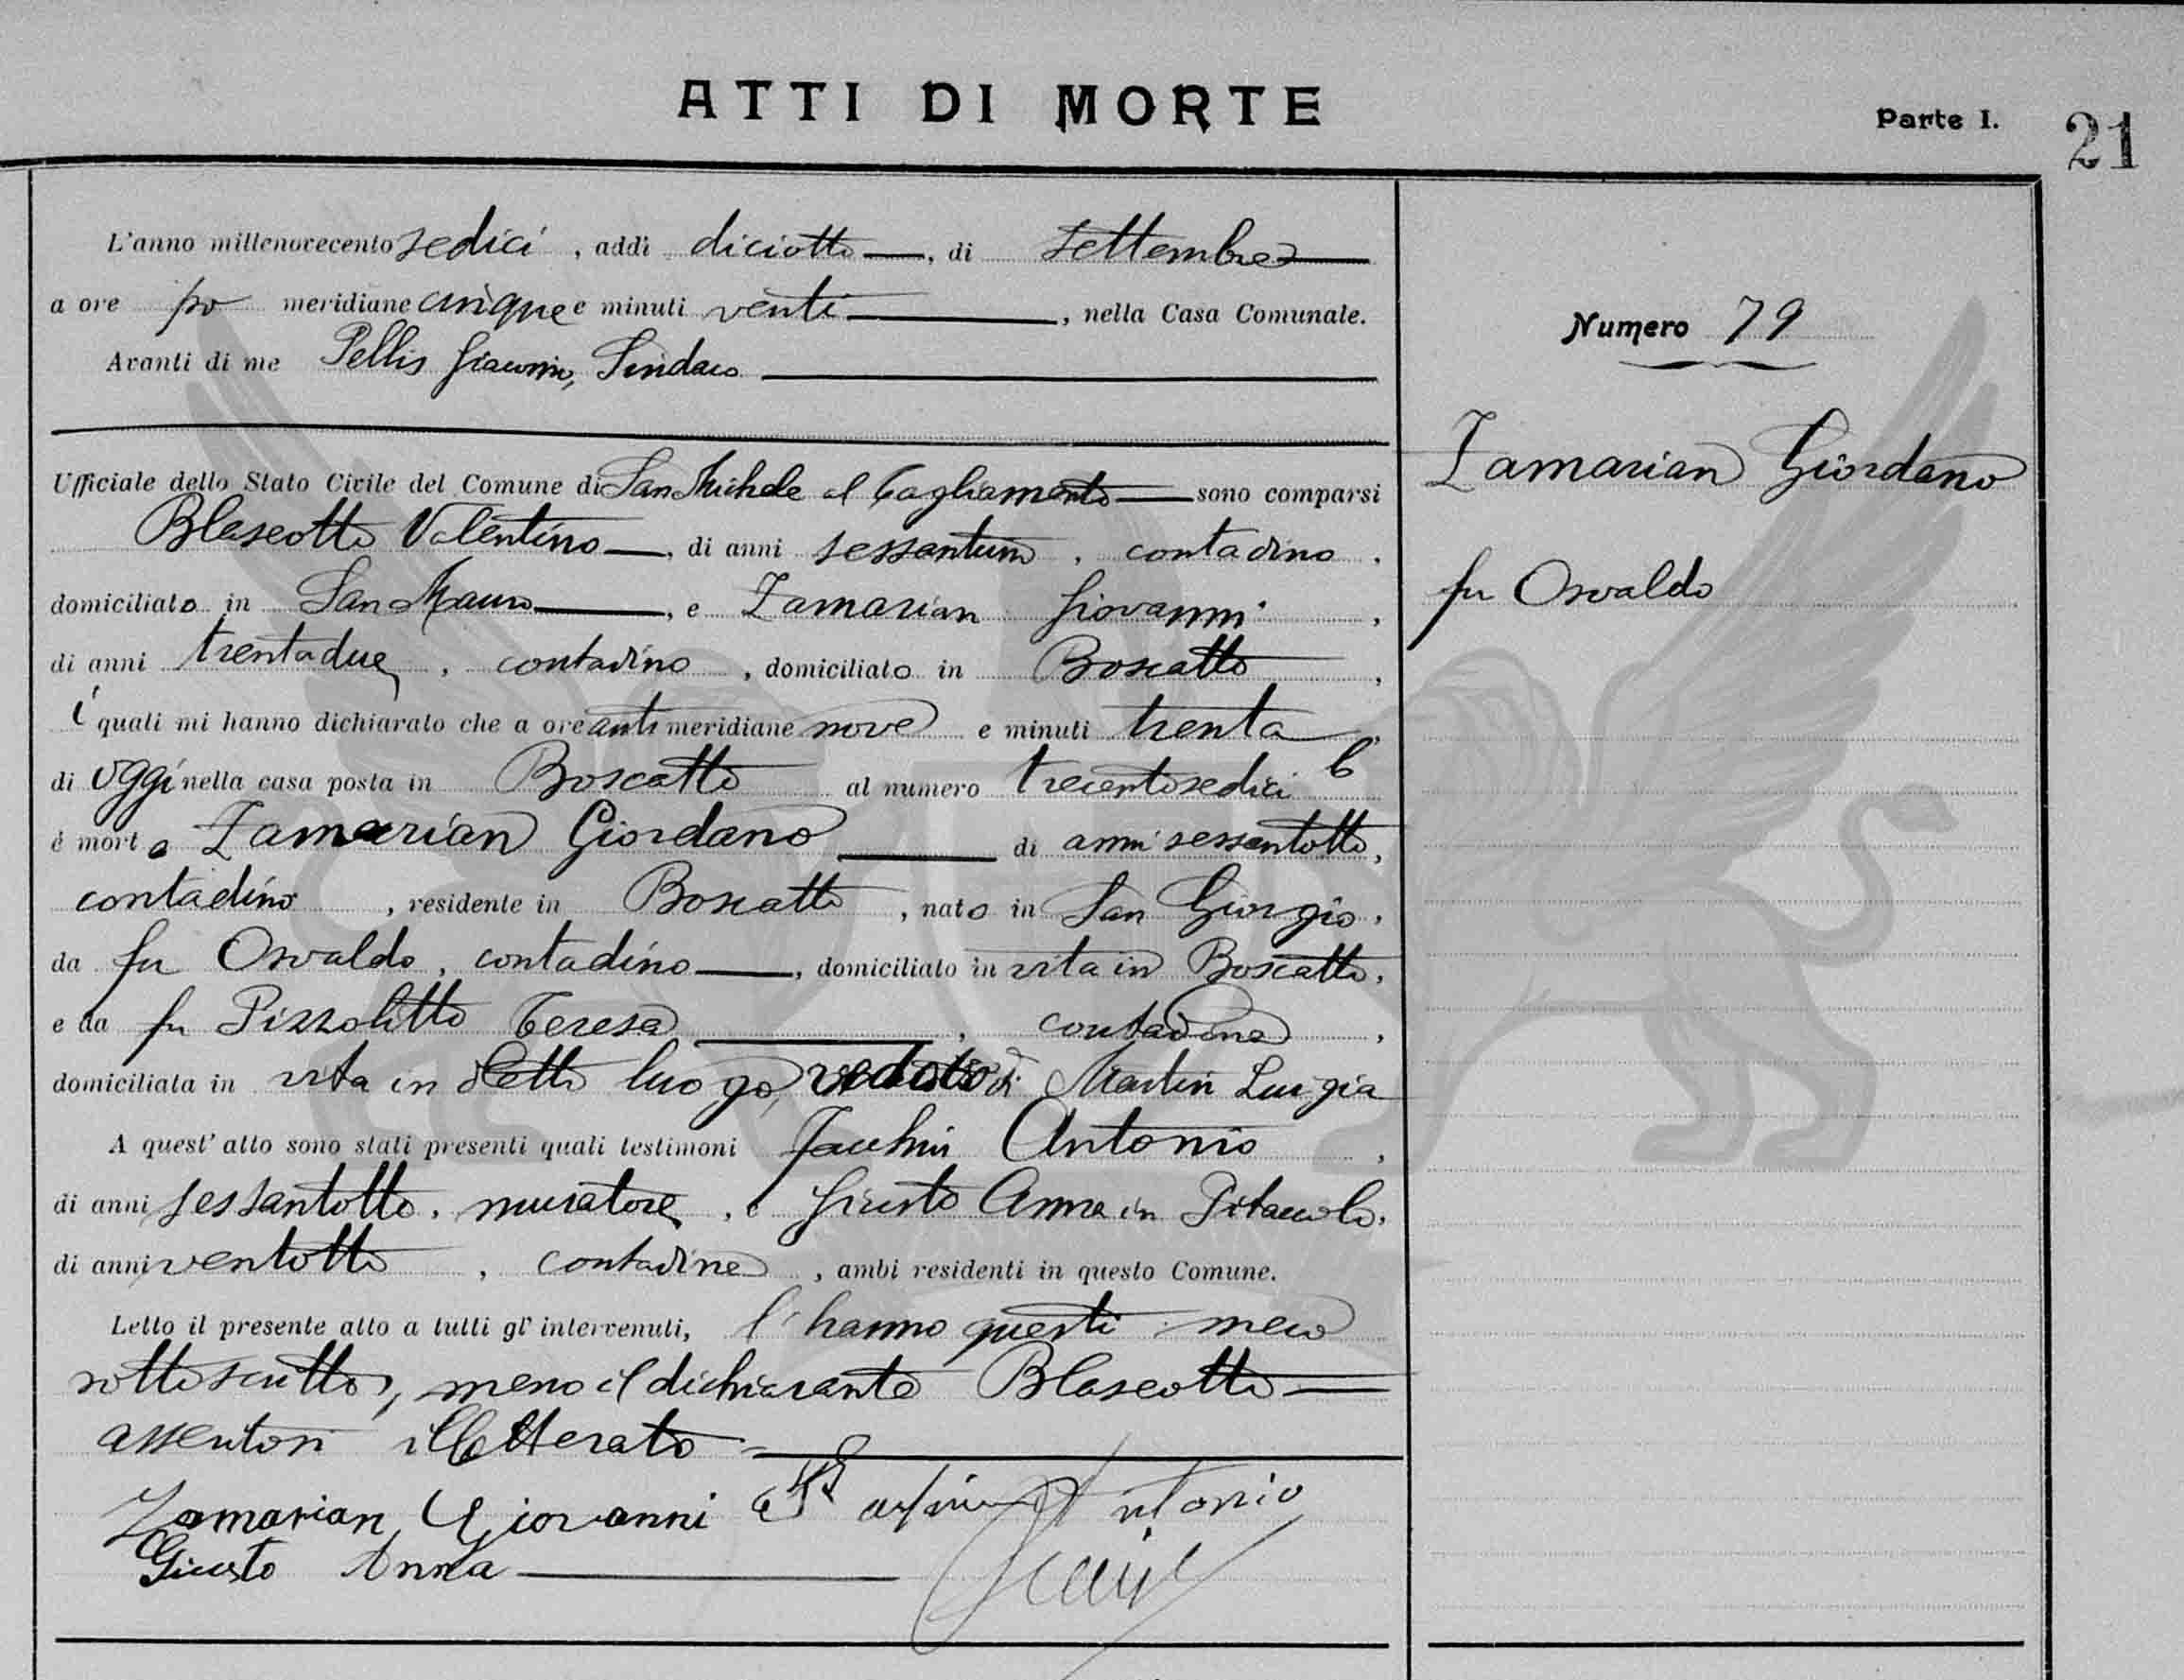 ATTI DI MORTE
Parte I. 21
L'anno millenovecento sedici, addi diciotto, di Settembre
a ore po meridiane cinque e minuti venti, nella Casa Comunale.
Avanti di me Pellis Giacomo, Sindaco
Ufficiale dello Stato Civile del Comune di San Michele al Tagliamento sono comparsi
Blaseotto Valentino, di anni sessantuno, contadino,
domiciliato in San Mauro, e Zamarian Giovanni,
di anni trentadue, contadino, domiciliato in Boscatto,
i quali mi hanno dichiarato che a ore anti meridiane nove e minuti trenta,
di oggi nella casa posta in Boscatto al numero trecentosedici b
è morto Zamarian Giordano di anni sessantotto,
contadino, residente in Boscatto, nato in San Giorgio,
da fu Osvaldo, contadino, domiciliato in vita in Boscatto,
e da fu Pizzolitto Teresa, contadina,
domiciliata in vita in detto luogo, vedovo di Martin Luigia
A quest'atto sono stati presenti quali testimoni Antonio,
di anni sessantotto, muratore, e Giusto Anna in Pitaccolo,
di anni ventotto, contadina, ambi residenti in questo Comune.
Letto il presente atto a tutti gl'intervenuti, l'hanno questi meco
sottoscritto, meno il dichiarante Blaseotto
assentosi illetterato
Zamarian Giovanni Antonio
Giusto Anna
Numero 79
Zamarian Giordano
fu Osvaldo